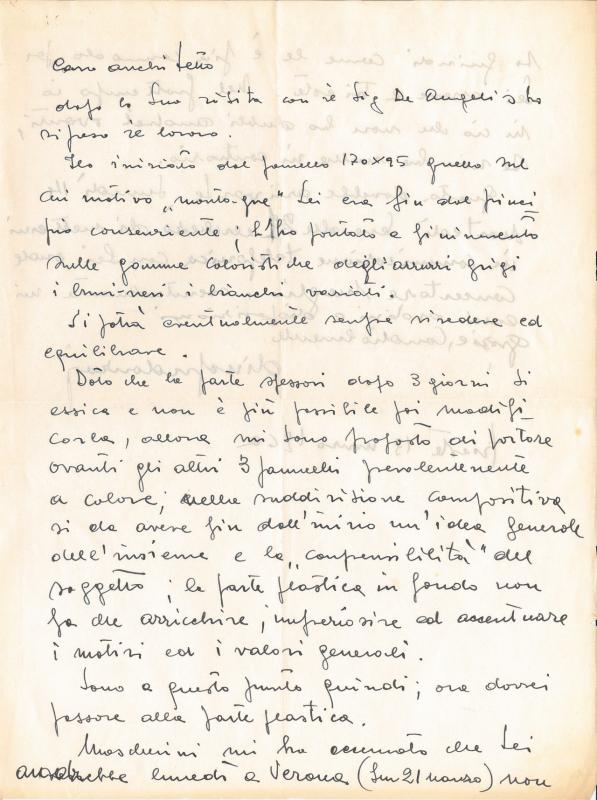 Caro architetto
dopo la Sua visita con il Sig De Angelis ho
ripreso il lavoro.
Ho iniziato dal pannello 170x95 quello sul
cui motivo „monta-gne" Lei era fin dal princi
pio consenziente, l'ho portato a finimento
sulle gamme coloristiche degli azzuri grigi
i bruni-neri i bianchi variati.
Si potrà eventualmente sempre rivedere ed
equilibrare.
Dato che la parte spessori dopo 3 giorni si
essica e non è più possibile poi modifi
carla, allora mi sono proposto di portare
avanti gli altri 3 pannelli prevalentemente
a colore; nella suddivisione compositiva
si da avere fin dall'inizio un'idea generale
dell'insieme e la „comprensibilità" del
soggetto; la parte plastica in fondo non
fa che arricchire, impreziosire ed accentuare
i motivi ed i valori generali.
Sono a questo punto quindi; ora dovrei
passare alla parte plastica.
Mascherini mi ha accennato che Lei
andrebbe lunedì a Verona (Lun 21 marzo) non